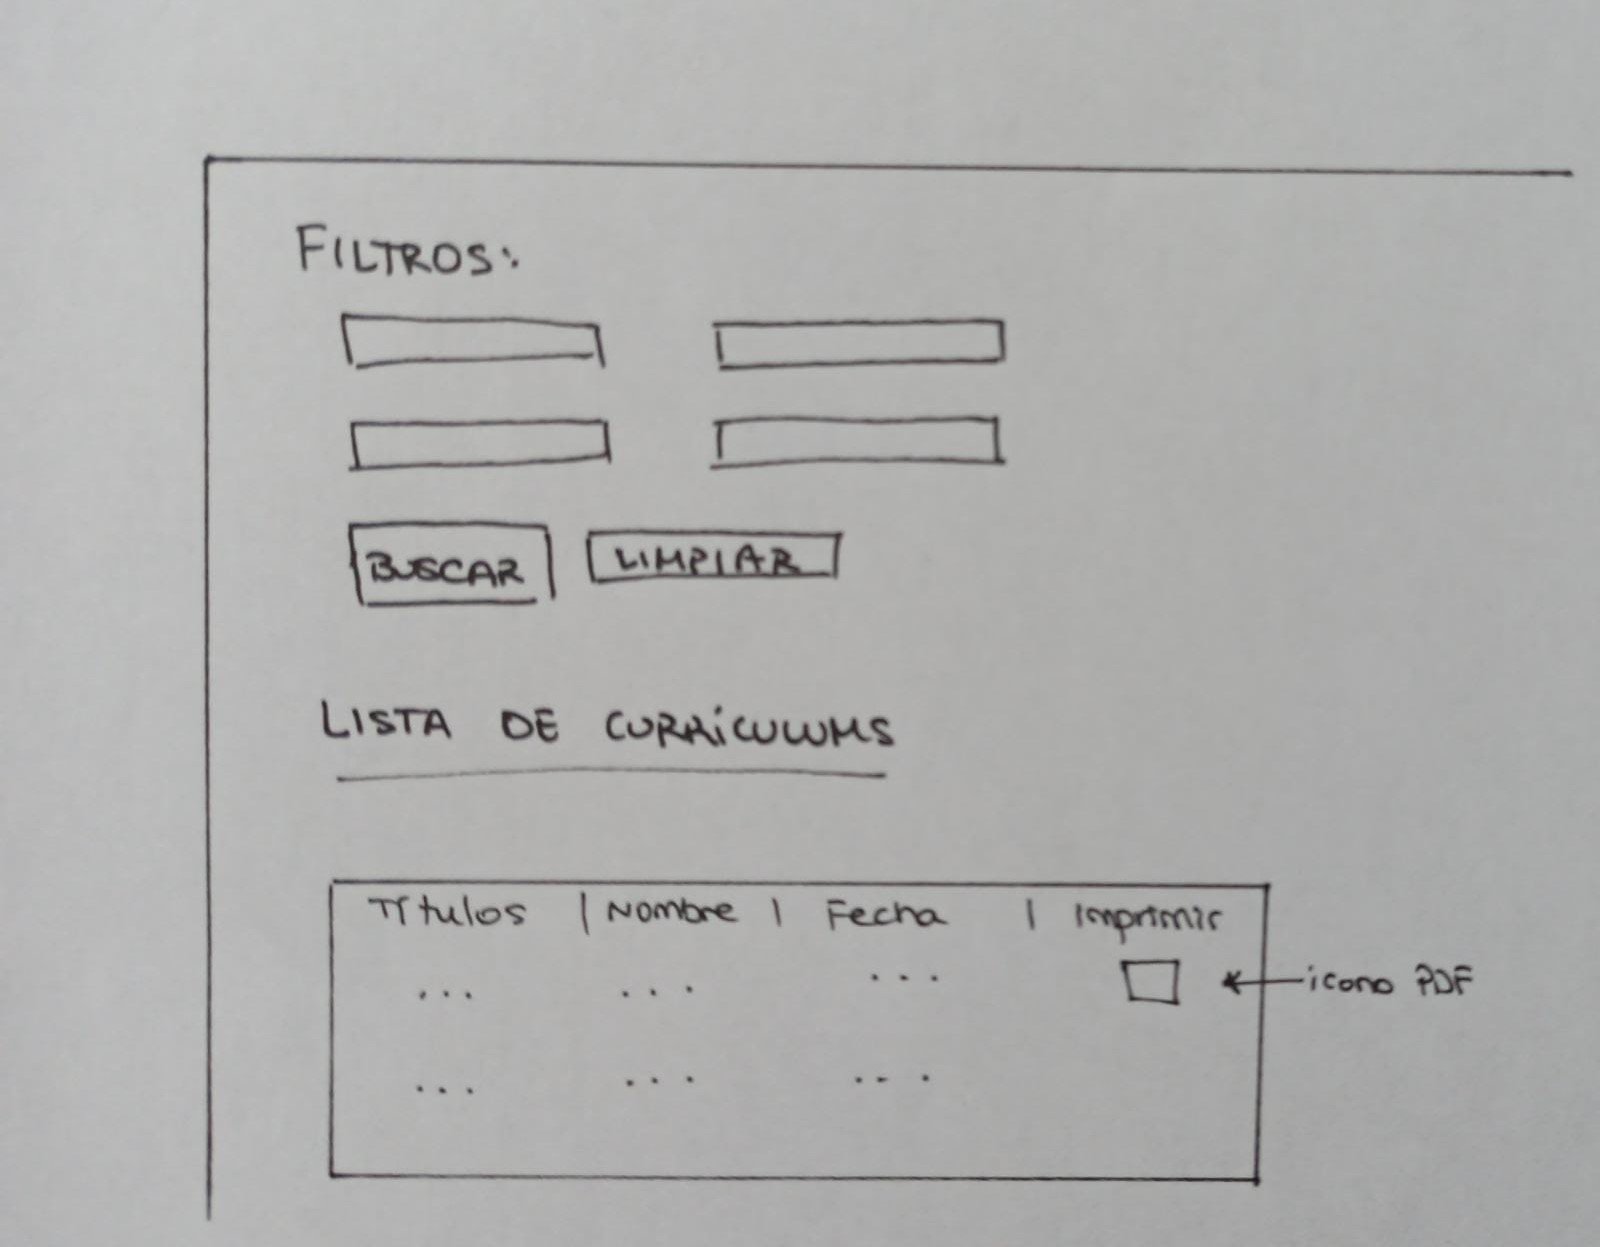 FILTROS:
BUSCAR
LIMPIAR
LISTA DE CURRÍCULUMS
Títulos | Nombre | Fecha | Imprimir
... ... ...
← icono PDF
... ... ...